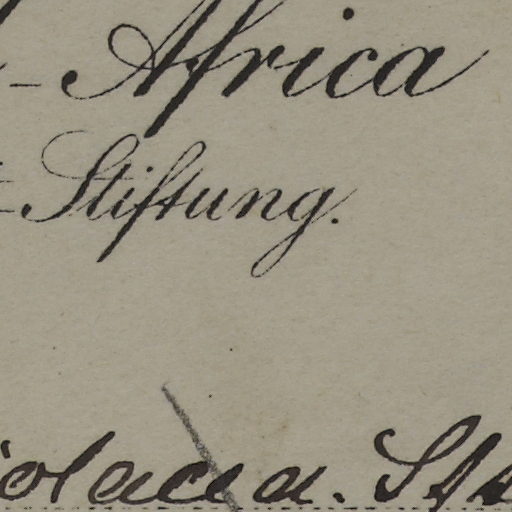 - Africa
-Stiftung.
iolacea. Sti